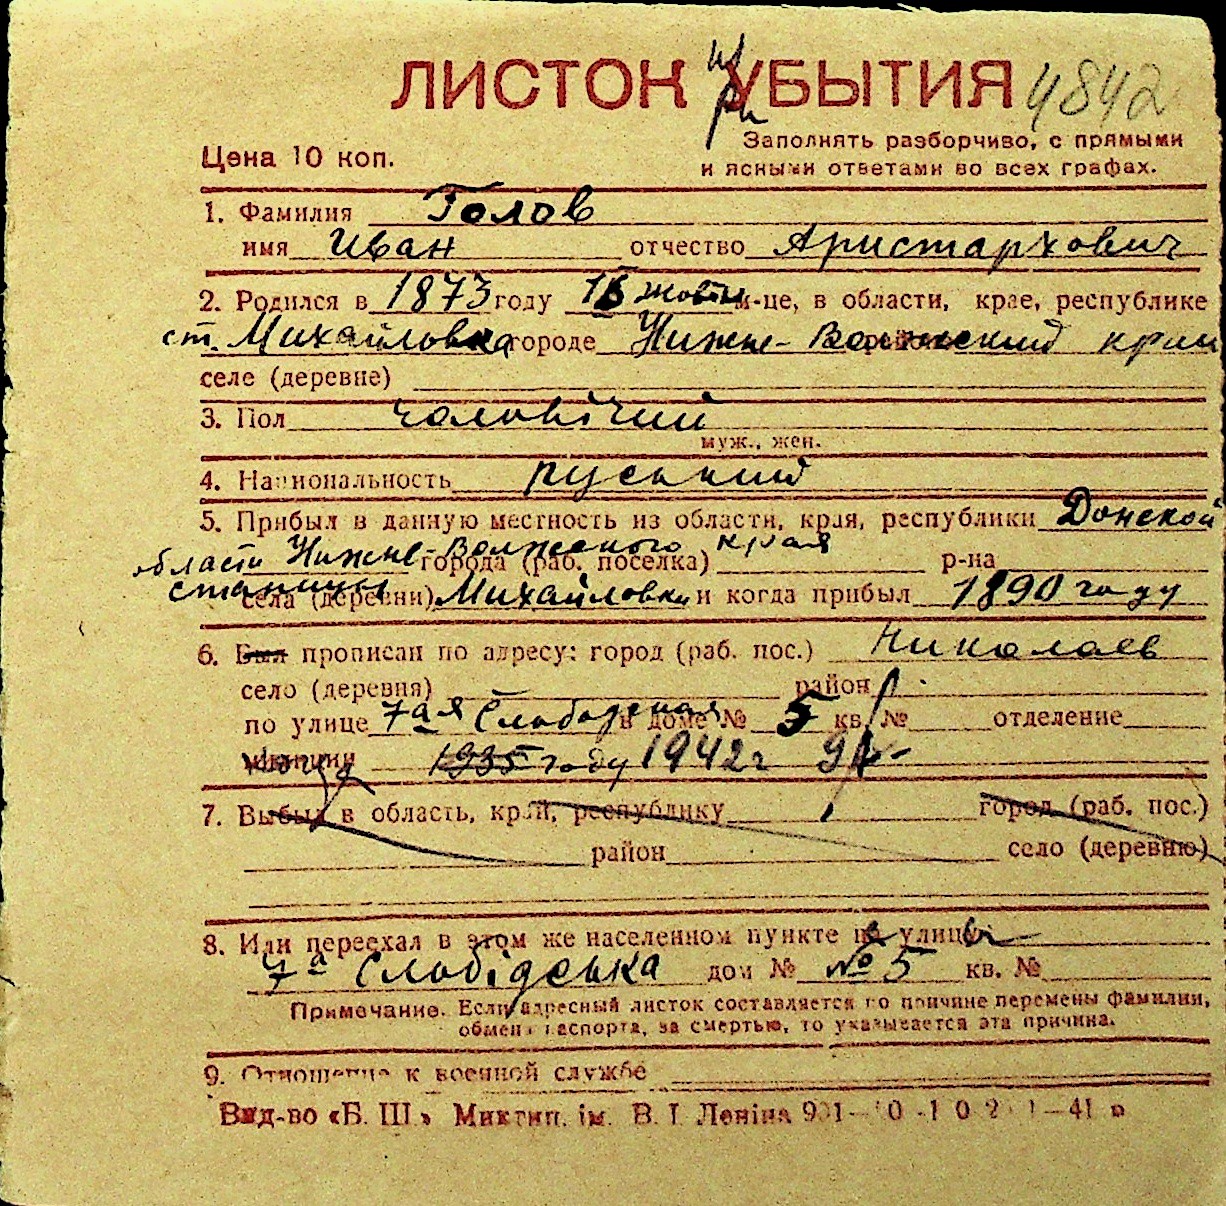 ЛИСТОК УБЫТИЯ 4842
Заполнять разборчиво, с прямыми
Цена 10 коп.
и ясными ответами во всех графах.
1. Фамилия Голов
имя Иван отчество Аристархович
2. Родился в 1873 году 15 жовтня м-це, в области, крае, республике
ст. Михайловка городе Нижне-Волжский край
селе (деревне)
3. Пол чоловічий
муж., жен.
4. Национальность руський
5. Прибыл в данную местность из области, края, республики Донской
области Нижне-Волжского края города (раб. поселка) р-на
станицы села (деревни) Михайловки и когда прибыл 1890 году
6. Был прописан по адресу: город (раб. пос.) Николаев
село (деревня) район
по улице 7ая Слободская в доме № 5 кв. № отделение
милиции 1935 году 1942 г
7. Выбыл в область, край, республику город (раб. пос.)
район село (деревню)
8. Или переехал в этом же населенном пункте на улицу
7а Слобідська дом № №5 кв. №
Примечание. Если адресный листок составляется по причине перемены фамилии,
обмена паспорта, за смертью, то указывается эта причина.
9. Отношение к военной службе
Вид-во «Б. Ш.» Миктип. ім. В. І. Леніна